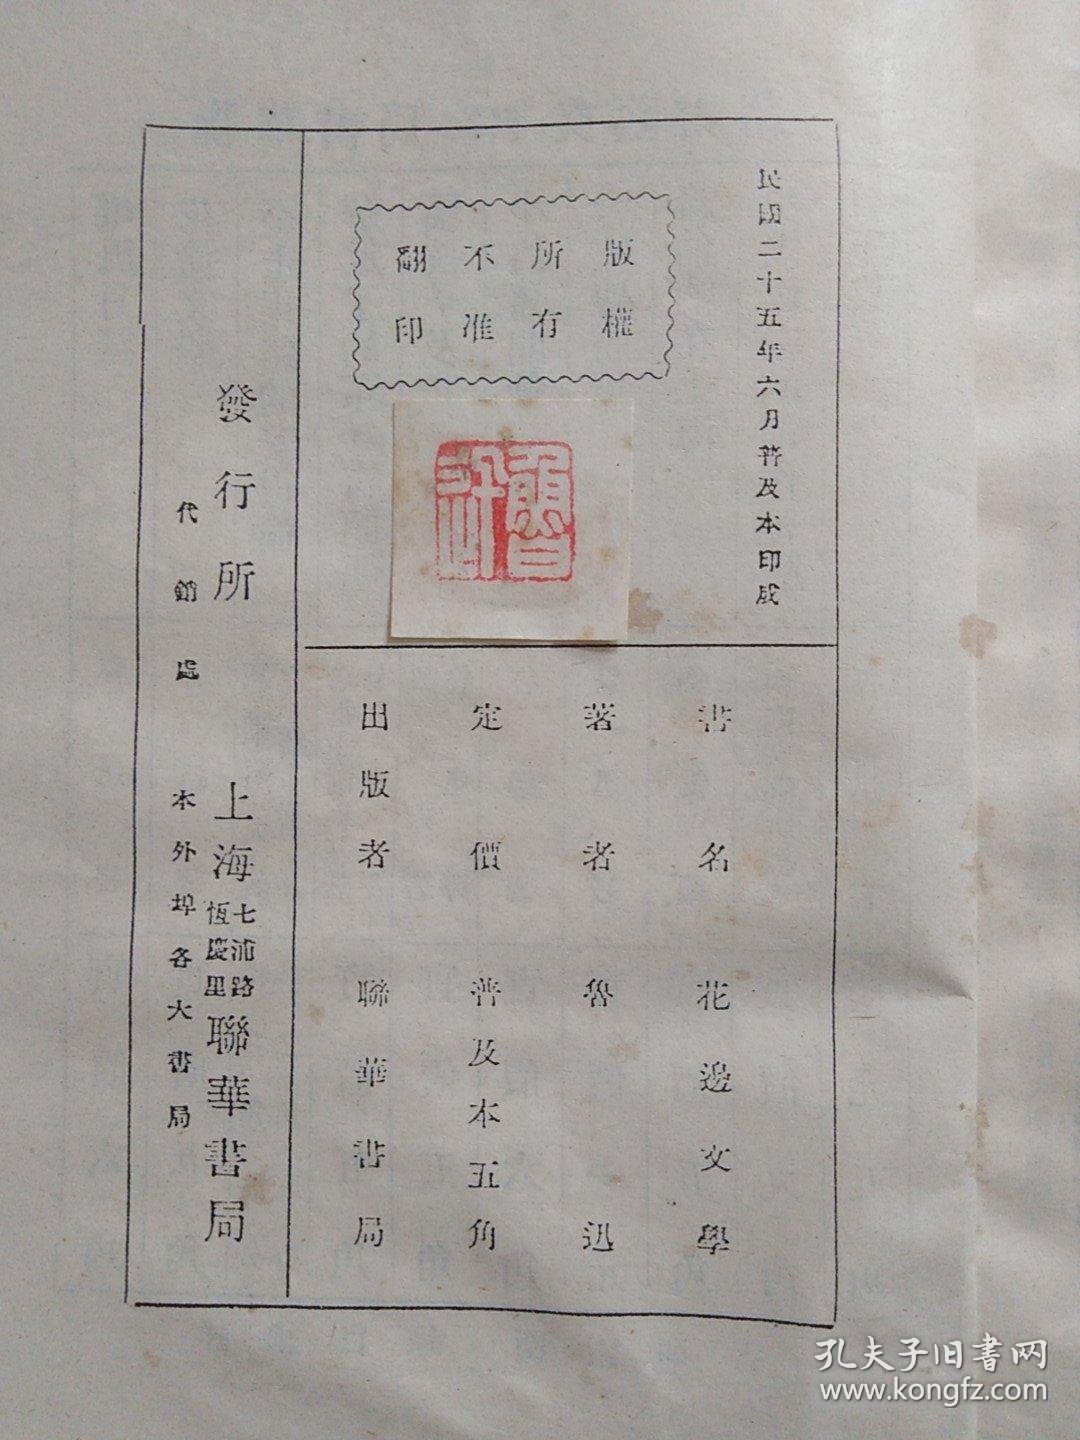 民國二十五年六月普及本印成
版權
所有
不准
翻印
魯迅
書名 花邊文學
著者 魯迅
定價 普及本五角
出版者 聯華書局
發行所 上海七浦路恆慶里聯華書局
代銷處 本外埠各大書局
孔夫子旧書网
www.kongfz.com